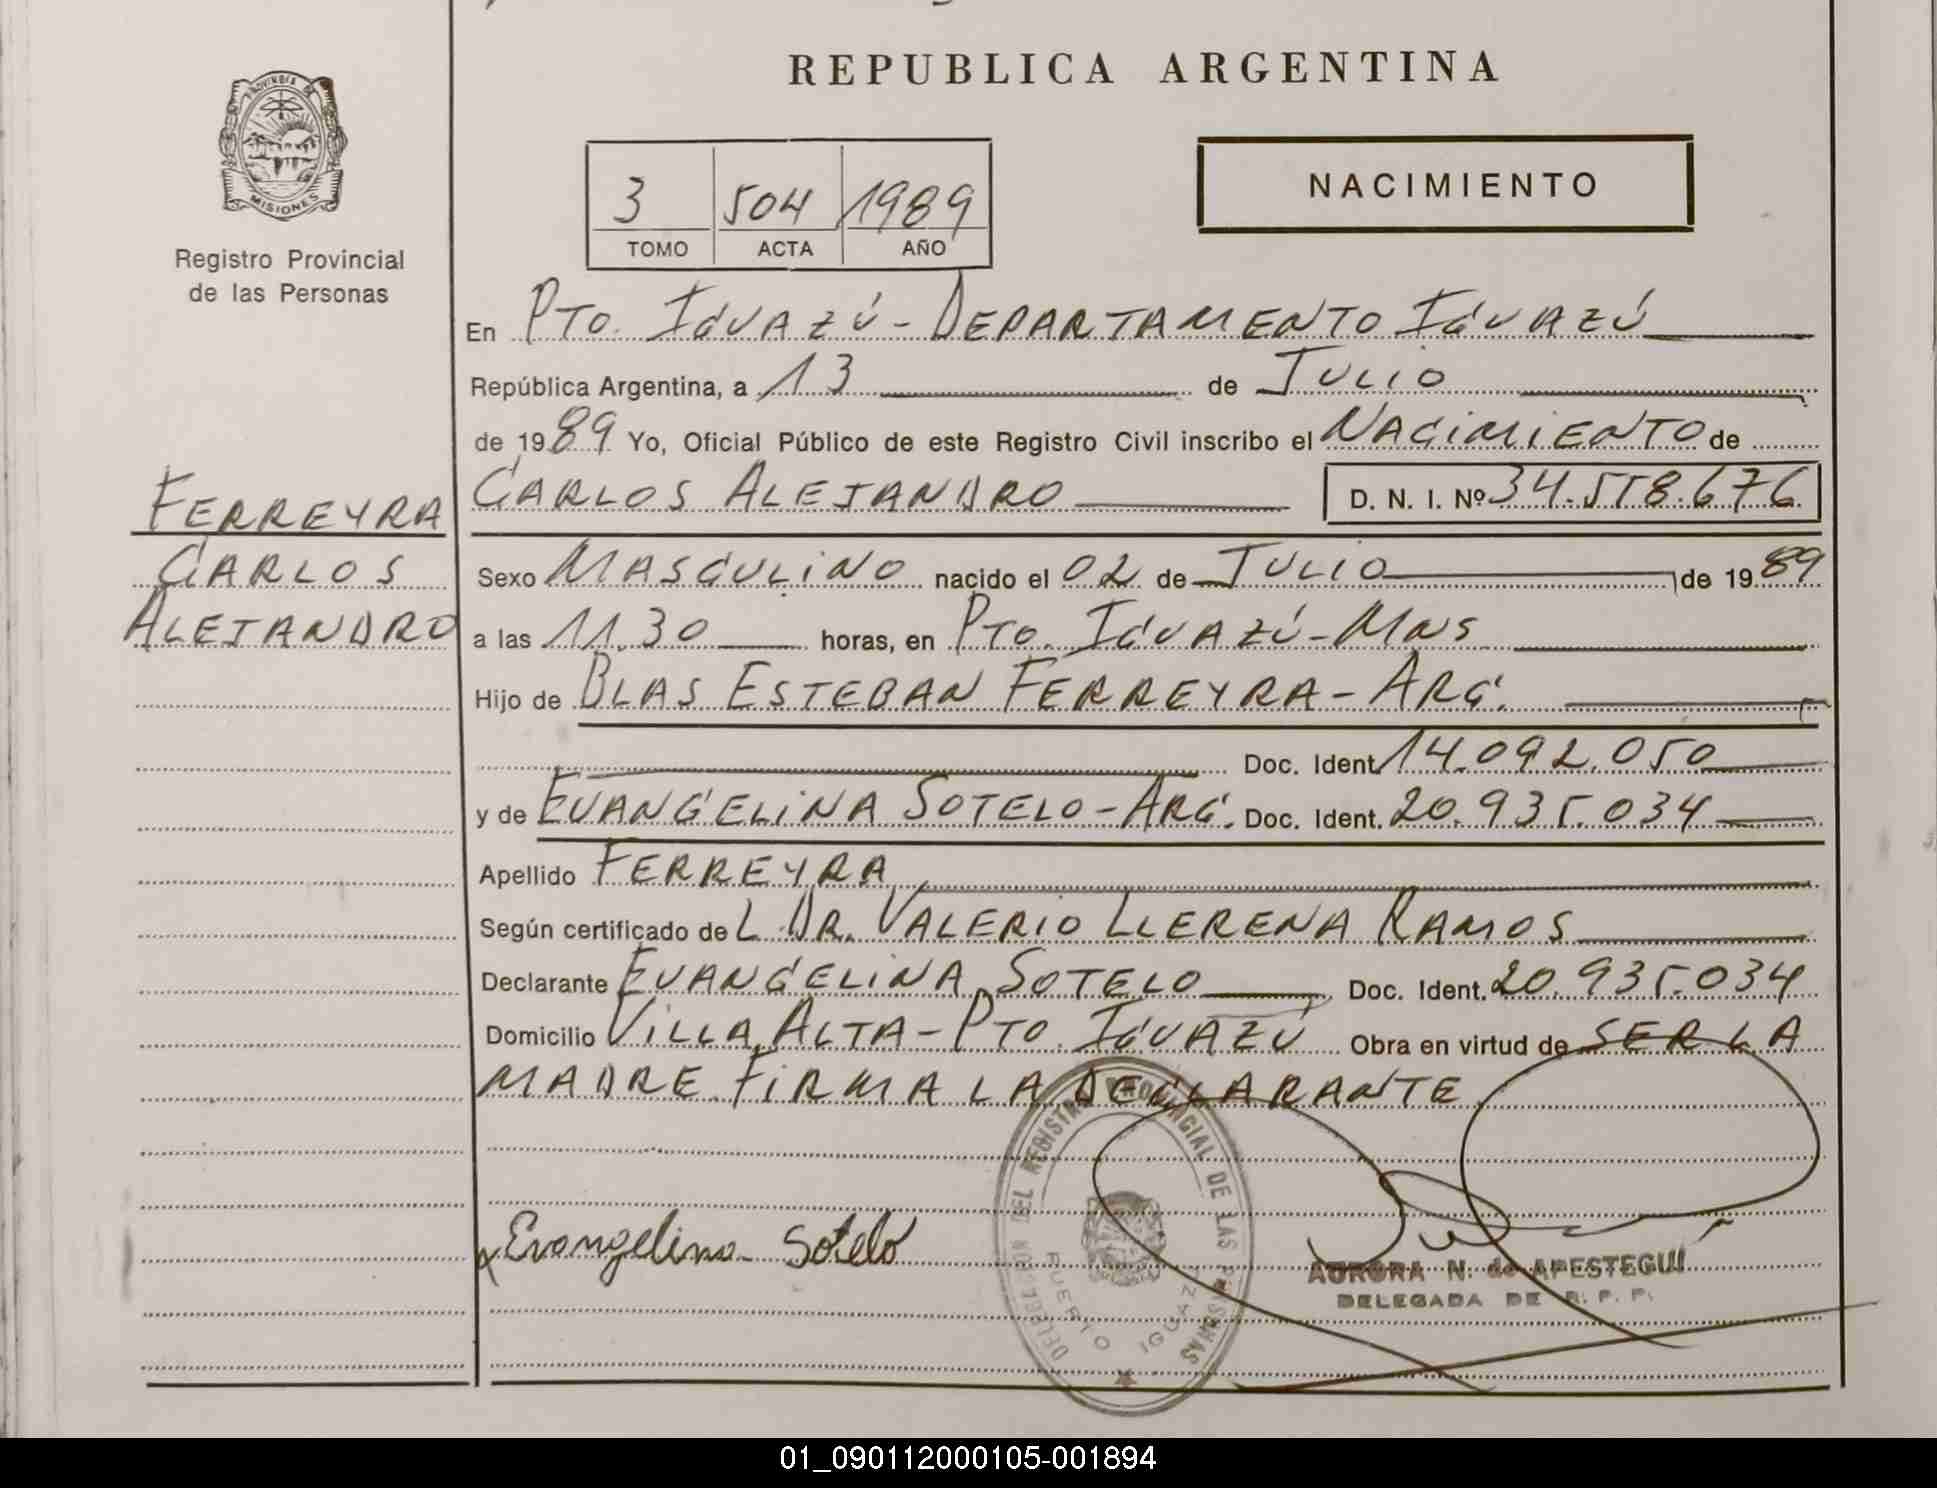 REPUBLICA ARGENTINA
PROVINCIA DE
MISIONES
Registro Provincial
de las Personas
3 504 1989
TOMO ACTA AÑO
NACIMIENTO
En PTO. IGUAZÚ - DEPARTAMENTO IGUAZÚ
República Argentina, a 13 de JULIO
de 1989 Yo, Oficial Público de este Registro Civil inscribo el NACIMIENTO de
CARLOS ALEJANDRO D. N. I. Nº 34.518.676
FERREYRA
CARLOS
ALEJANDRO
Sexo MASCULINO nacido el 02 de JULIO de 1989
a las 11.30 horas, en PTO. IGUAZÚ - MNS
Hijo de BLAS ESTEBAN FERREYRA - ARG.
Doc. Ident. 14.092.050
y de EVANGELINA SOTELO - ARG. Doc. Ident. 20.935.034
Apellido FERREYRA
Según certificado de L DR. VALERIO LLERENA RAMOS
Declarante EVANGELINA SOTELO Doc. Ident. 20.935.034
Domicilio VILLA ALTA - PTO. IGUAZÚ Obra en virtud de SER LA
MADRE FIRMA LA DECLARANTE
Evangelina Sotelo
DEL REGISTRO PROVINCIAL DE LAS PERSONAS
PUERTO IGUAZU
AURORA N. de APESTEGUI
DELEGADA DE R. P. P.
01_090112000105-001894